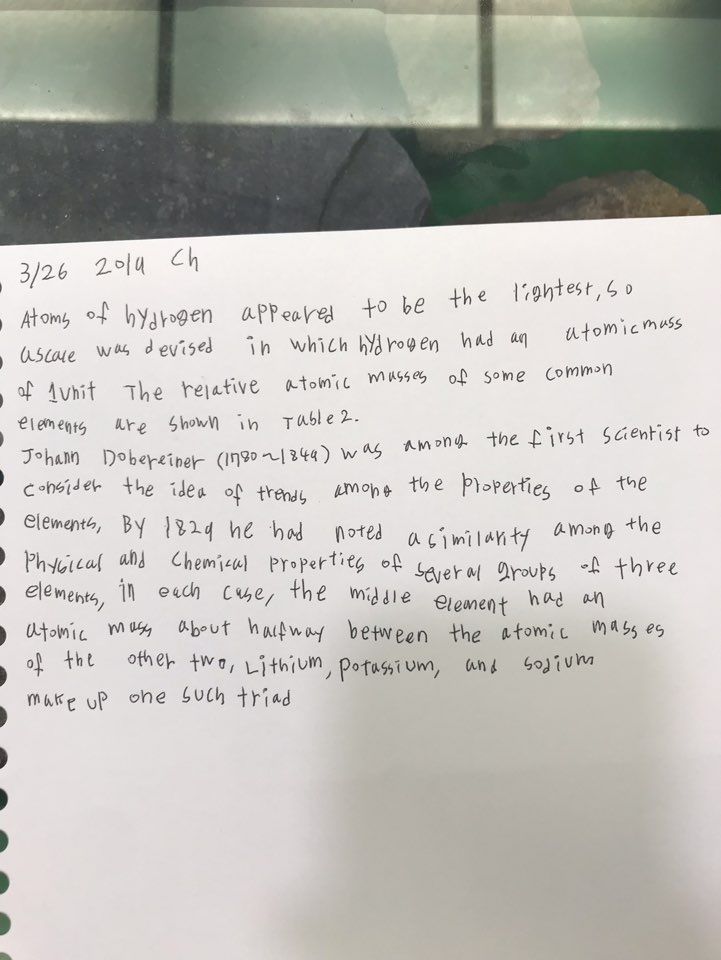 3/26 2019 Ch
Atoms of hydrogen appeared to be the lightest, so
ascale was devised in which hydrogen had an atomicmass
of 1unit The relative atomic masses of some common
elements are shown in Table 2.
Johann Dobereiner (1780~1849) was among the first scientist to
consider the idea of trends among the properties of the
elements, By 1829 he had noted a similarity among the
Physical and Chemical properties of several groups of three
elements, in each case, the middle element had an
atomic mass about halfway between the atomic masses
of the other two, Lithium, potassium, and sodium
make up one such triad